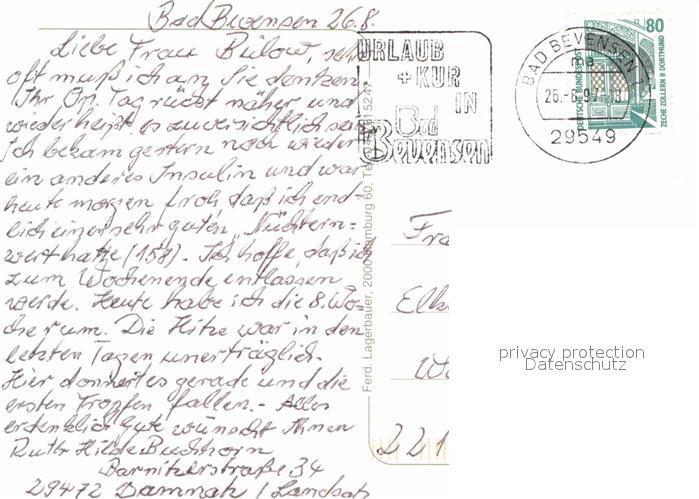 Bad Bevensen 26.8.
Liebe Frau Bülow, sehr
oft muß ich an Sie denken.
Ihr Op. Tag rückt näher und
wieder heißt es zuversichtlich sein.
Ich bekam gestern noch wieder
ein anderes Insulin und war
heute morgen froh daß ich end-
lich einen sehr guten „Nüchtern-
wert hatte (158). Ich hoffe, daß ich
zum Wochenende entlassen
werde. Heute habe ich die 8. Wo-
che rum. Die Hitze war in den
letzten Tagen unerträglich.
Hier donnert es gerade und die
ersten Tropfen fallen. - Alles
erdenklich Gute wünscht Ihnen
Ruth Hilde Buchhorn
Barnitzerstraße 34
29472 Damnatz / Landsatz
URLAUB
+ KUR
IN
Bad
Bevensen
BAD BEVENSEN 1
ma
26.-8.97
29549
80
DEUTSCHE BUNDESPOST
ZECHE ZOLLERN II DORTMUND
Ferd. Lagerbauer, 2000 Hamburg 60,
Fra
Elk
221
privacy protection
Datenschutz